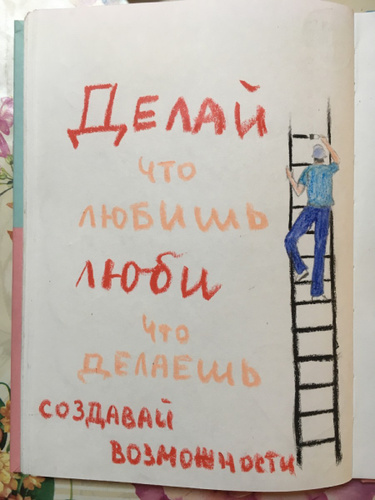 Делай
что
любишь
люби
что
делаешь
создавай
возможности